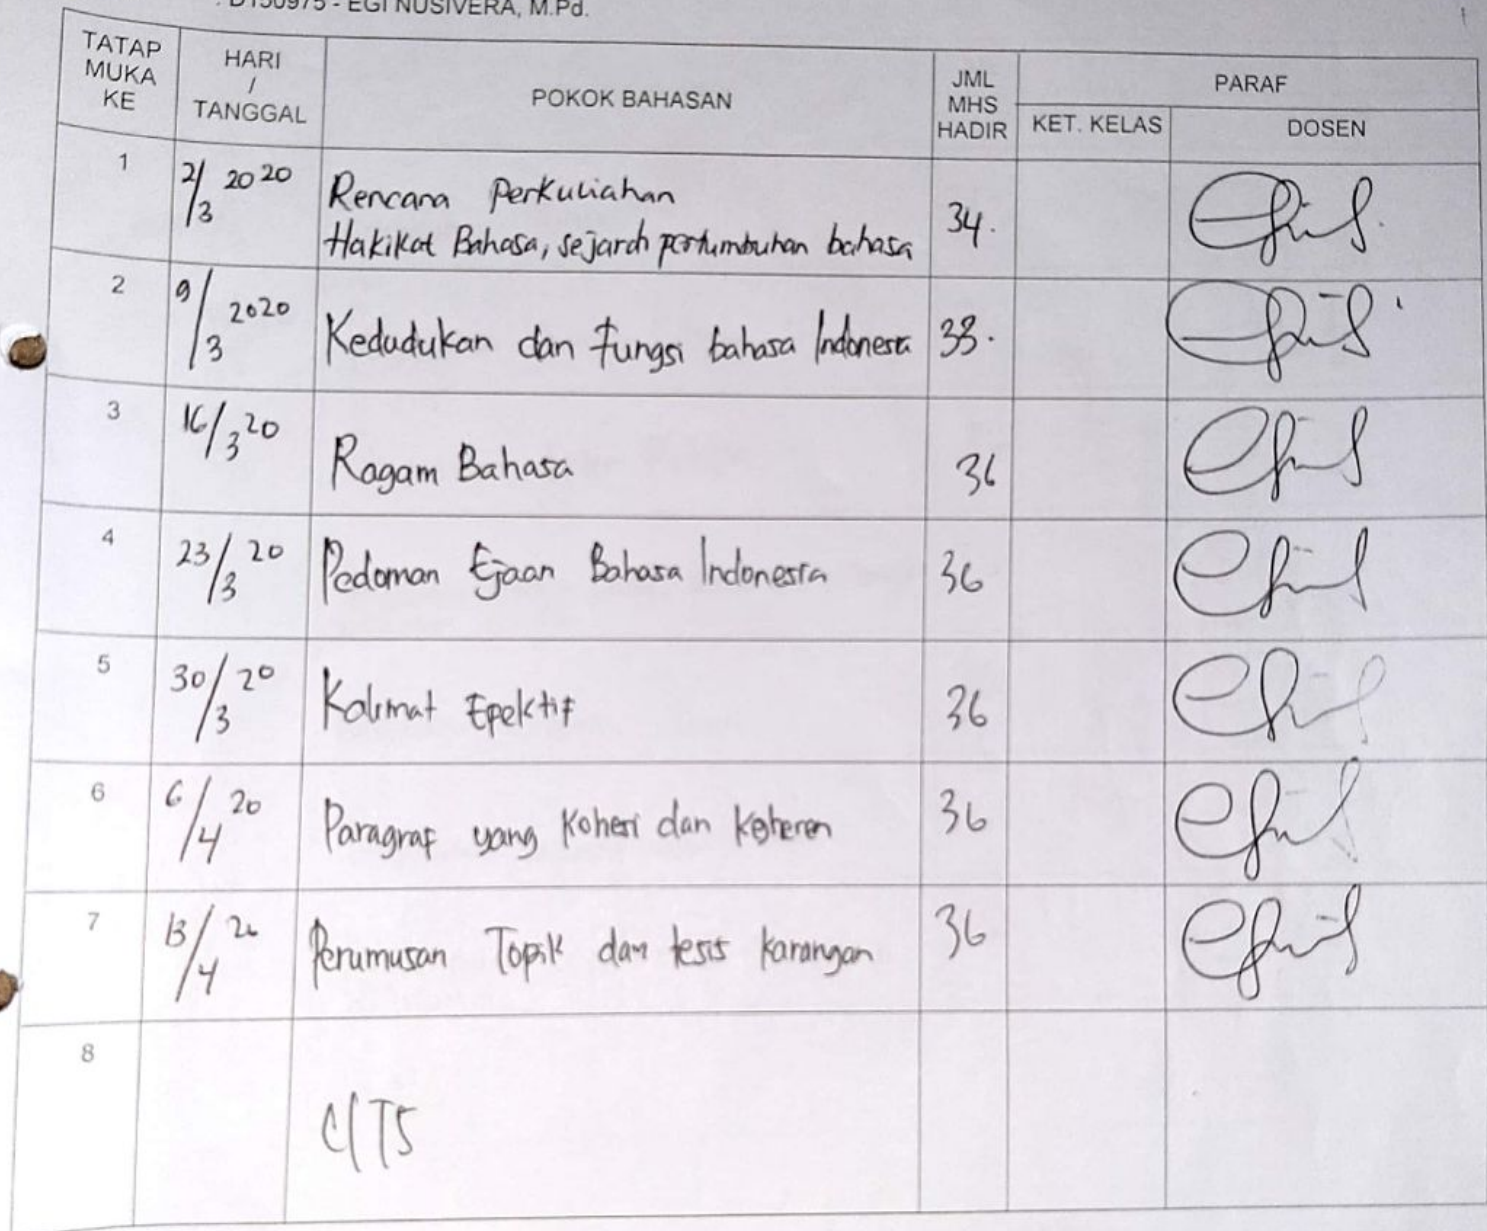 : D150975 - EGI NUSIVERA, M.Pd.
TATAP MUKA KE
HARI / TANGGAL
POKOK BAHASAN
JML MHS HADIR
PARAF
KET. KELAS
DOSEN
1
2/3 2020
Rencana Perkuliahan
Hakikat Bahasa, sejarah pertumbuhan bahasa
34.
2
9/3 2020
Kedudukan dan fungsi bahasa Indonesia
38.
3
16/3 20
Ragam Bahasa
36
4
23/3 20
Pedoman Ejaan Bahasa Indonesia
36
5
30/3 20
Kalimat Epektif
36
6
6/4 20
Paragraf yang Kohesi dan Koheren
36
7
13/4 20
Perumusan Topik dan tesis karangan
36
8
UTS